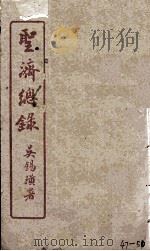 聖濟總錄
吳錫璜署
47-50